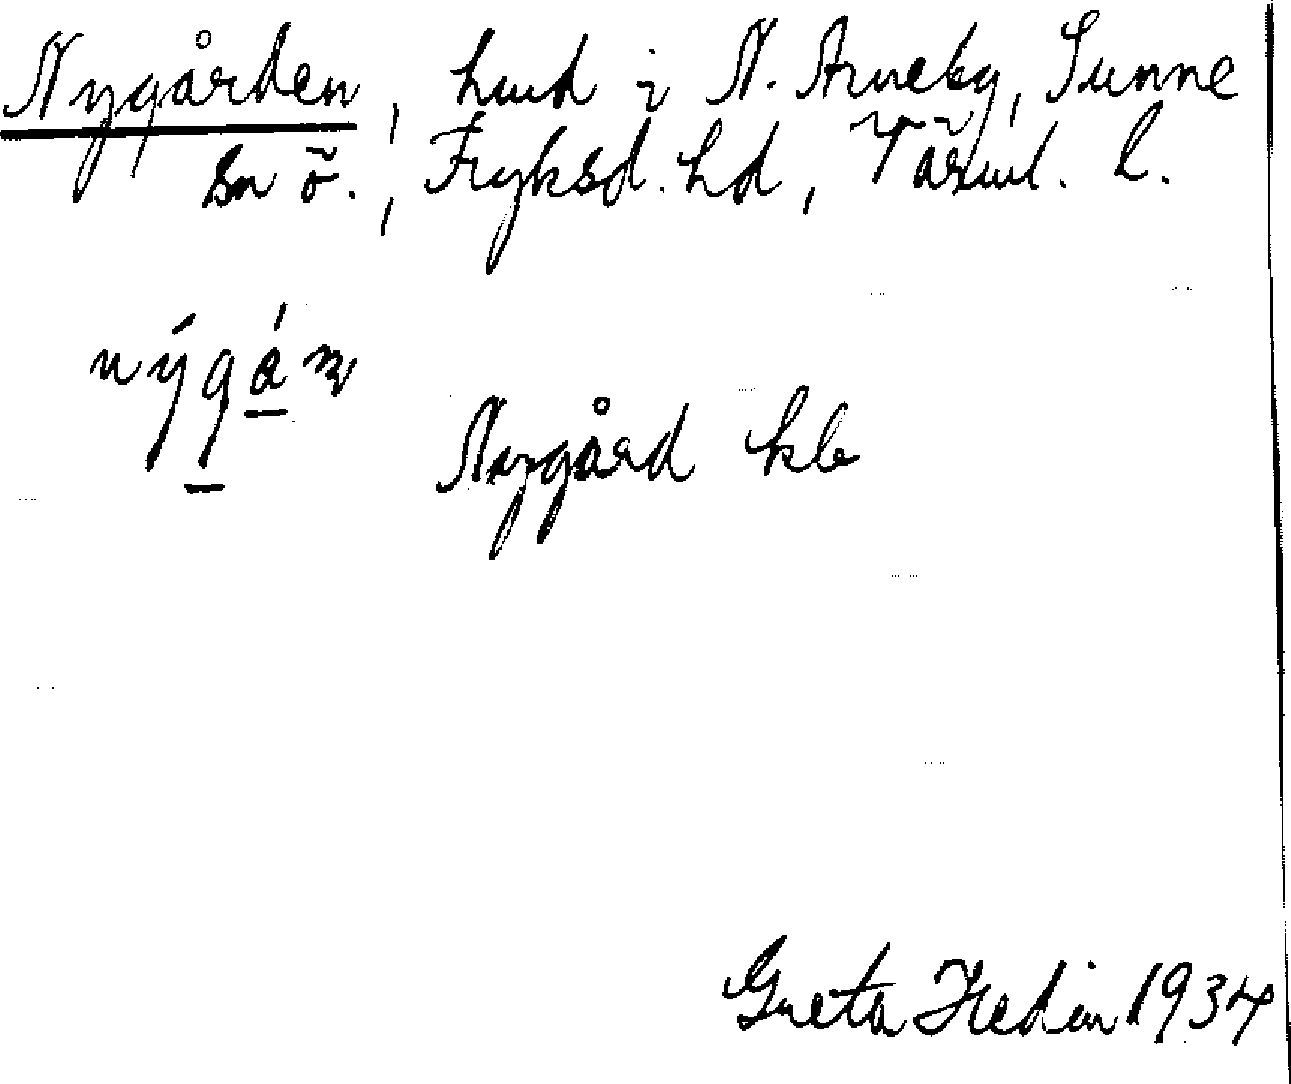 Nygården, hmd i N. Arneby, Sunne
sn ö., Fryksd. hd, Värml. l.
Nygård kb
Greta Hedin 1934